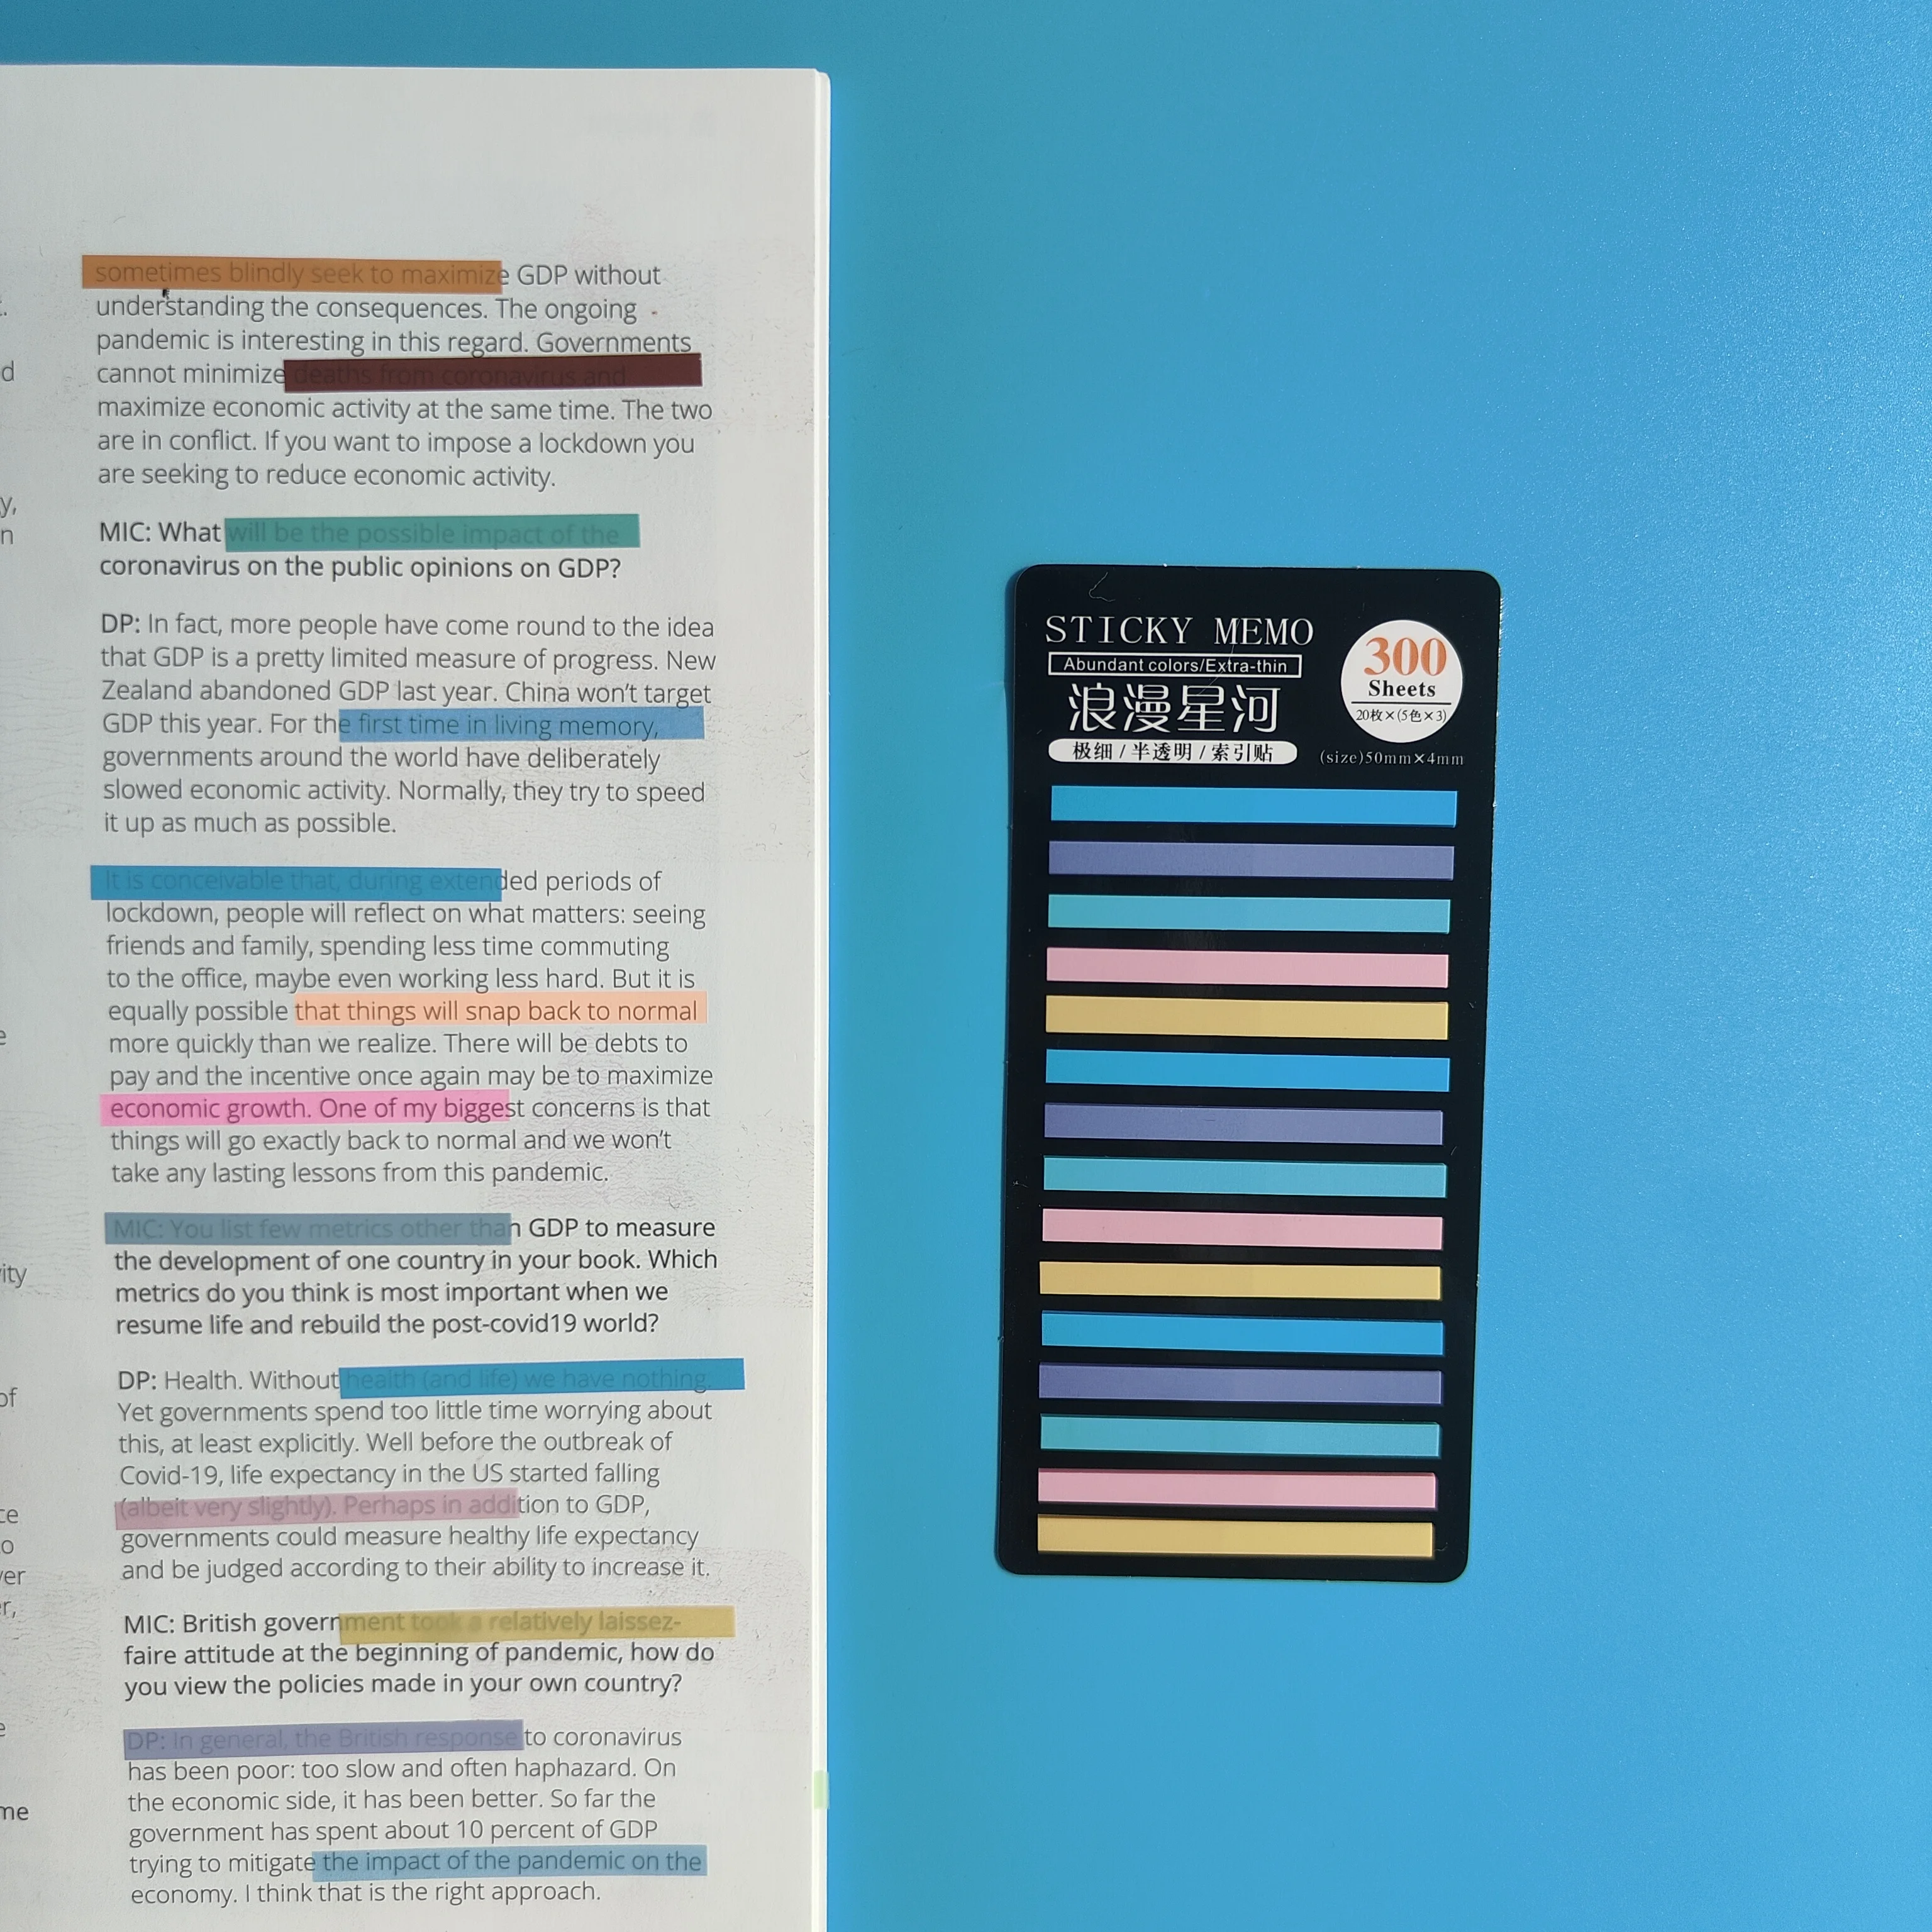 sometimes blindly seek to maximize GDP without
understanding the consequences. The ongoing
pandemic is interesting in this regard. Governments
cannot minimize deaths from coronavirus and
maximize economic activity at the same time. The two
are in conflict. If you want to impose a lockdown you
are seeking to reduce economic activity.
MIC: What will be the possible impact of the
coronavirus on the public opinions on GDP?
DP: In fact, more people have come round to the idea
that GDP is a pretty limited measure of progress. New
Zealand abandoned GDP last year. China won't target
GDP this year. For the first time in living memory,
governments around the world have deliberately
slowed economic activity. Normally, they try to speed
it up as much as possible.
It is conceivable that, during extended periods of
lockdown, people will reflect on what matters: seeing
friends and family, spending less time commuting
to the office, maybe even working less hard. But it is
equally possible that things will snap back to normal
more quickly than we realize. There will be debts to
pay and the incentive once again may be to maximize
economic growth. One of my biggest concerns is that
things will go exactly back to normal and we won't
take any lasting lessons from this pandemic.
MIC: You list few metrics other than GDP to measure
the development of one country in your book. Which
metrics do you think is most important when we
resume life and rebuild the post-covid19 world?
DP: Health. Without health (and life) we have nothing.
Yet governments spend too little time worrying about
this, at least explicitly. Well before the outbreak of
Covid-19, life expectancy in the US started falling
(albeit very slightly). Perhaps in addition to GDP,
governments could measure healthy life expectancy
and be judged according to their ability to increase it.
MIC: British government took a relatively laissez-
faire attitude at the beginning of pandemic, how do
you view the policies made in your own country?
DP: In general, the British response to coronavirus
has been poor: too slow and often haphazard. On
the economic side, it has been better. So far the
government has spent about 10 percent of GDP
trying to mitigate the impact of the pandemic on the
economy. I think that is the right approach.
STICKY MEMO
Abundant colors/Extra-thin
浪漫星河
极细/半透明/索引贴
300
Sheets
20枚×(5色×3)
(size)50mm×4mm